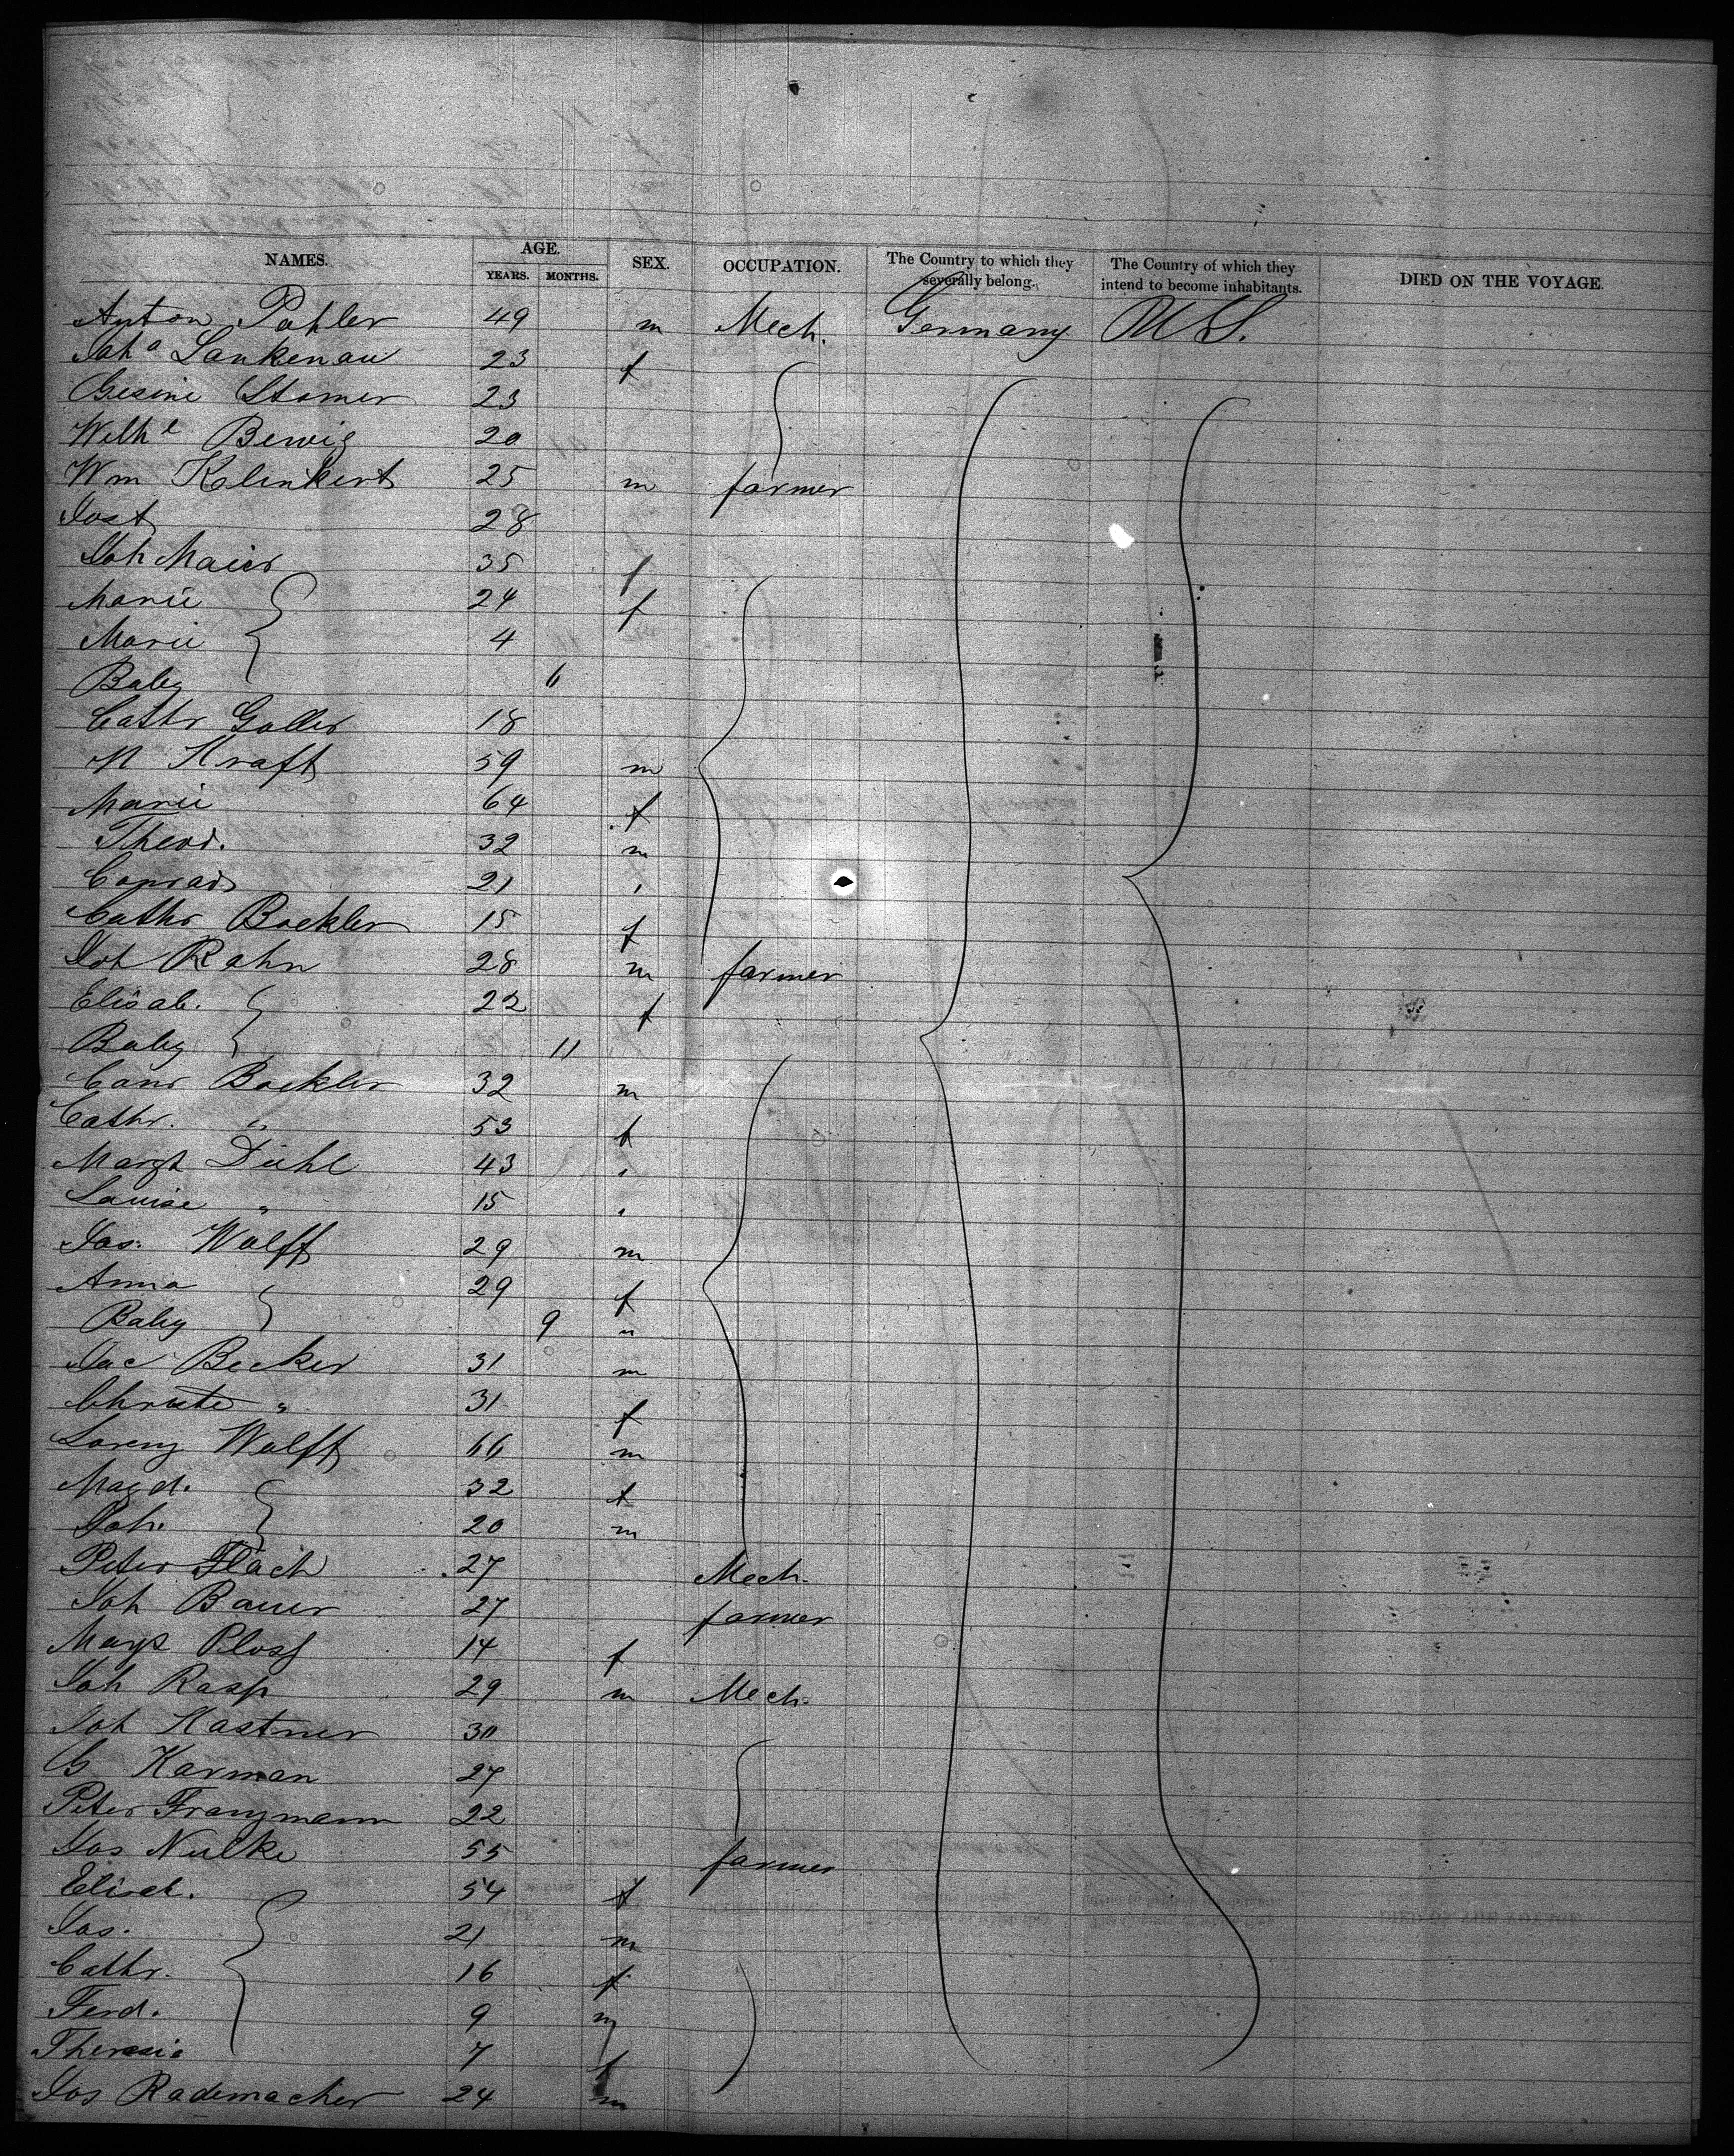 NAMES. AGE. YEARS. MONTHS. SEX. OCCUPATION. The Country to which they severally belong. The Country of which they intend to become inhabitants. DIED ON THE VOYAGE.
Anton Pohler 49 m Mech. Germany U S.
Joh a Lankenau 23 f
Gesine Stomer 23
Wilh e Bewig 20
Wm Klinkert 25 m farmer
Jost 28
Joh Maier 35 f
Marie 24 f
Marie 4
Baby 6
Cathr Galler 18
N Kraft 59 m
Marie 64 f
Theod. 32 m
Conrad 21 "
Cathr Bockler 15 f
Joh Rahn 28 m farmer
Elisab. 22 f
Baby 11
Conr Bockler 32 m
Cathr. " 53 f
Margt Diehl 43 "
Louise " 15 "
Jos. Wolff 29 m
Anna 29 f
Baby 9 "
Jac Becker 31 m
Christe " 31 f
Lorenz Wolff 66 m
Magd. 32 f
Joh. 20 m
Peter Flach 27 Mech.
Joh Bauer 27 farmer
Margt 14 f
Joh Rasp 29 m Mech.
Joh Kastner 30
G Karman 27
Peter Franzmann 22
Jos Nulke 55 farmer
Elisab. 54 f
Jos. 21 m
Cathr. 16 f
Ferd. 9 m
Theresia 7 f
Jos Rademacher 24 m